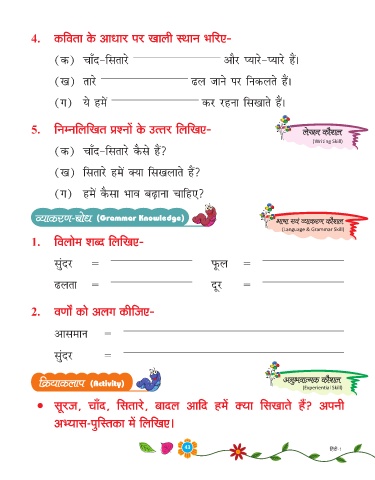 4. कविता के आधार पर खाली स्थान भरिए-
(क) चाँद-सितारे और प्यारे-प्यारे हैं।
(ख) तारे ढल जाने पर निकलते हैं।
(ग) ये हमें कर रहना सिखाते हैं।
5. निम्नलिखित प्रश्नों के उत्तर लिखिए-
लेखन कौशल
(Writing Skill)
(क) चाँद-सितारे कैसे हैं?
(ख) सितारे हमें क्या सिखलाते हैं?
(ग) हमें कैसा भाव बढ़ाना चाहिए?
व्याकरण-बोध (Grammar Knowledge)
भाषा एवं व्याकरण कौशल
(Language & Grammar Skill)
1. विलोम शब्द लिखिए-
सुंदर = फूल =
ढलता = दूर =
2. वर्णों को अलग कीजिए-
आसमान =
सुंदर =
क्रियाकलाप (Activity)
अनुभवात्मक कौशल
(Experiential Skill)
• सूरज, चाँद, सितारे, बादल आदि हमें क्या सिखाते हैं? अपनी
अभ्यास-पुस्तिका में लिखिए।